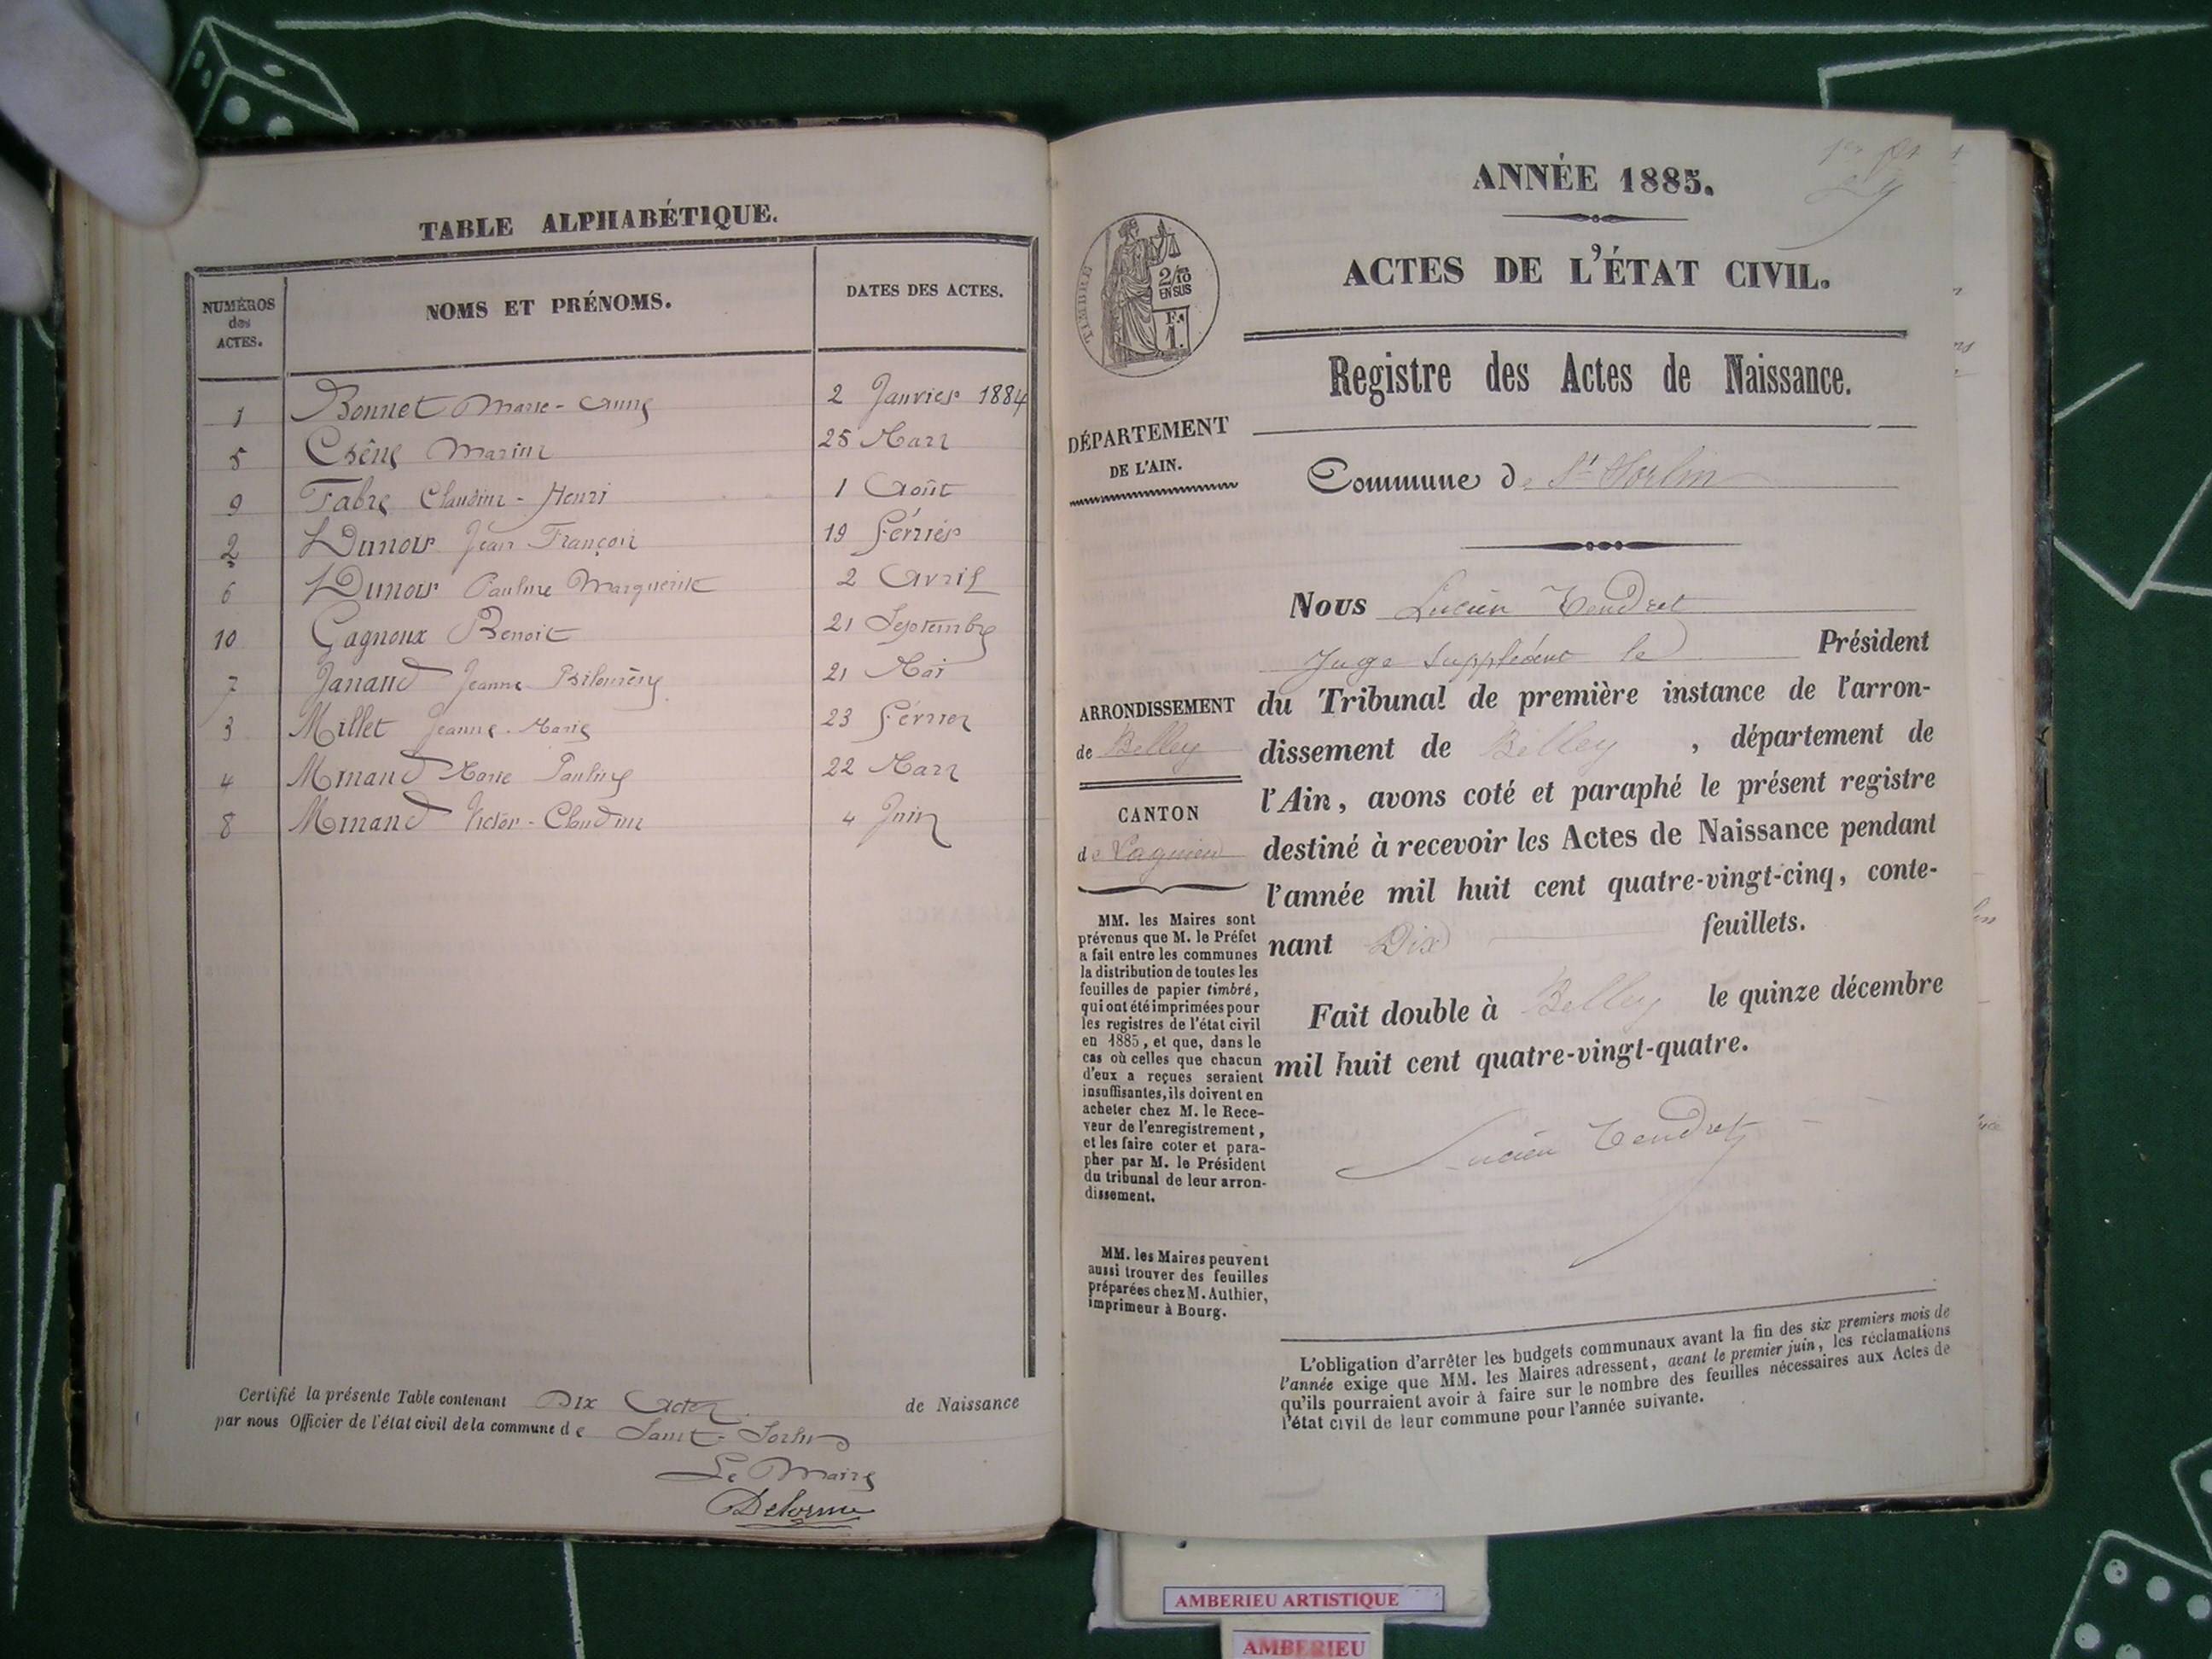 TABLE ALPHABÉTIQUE.
NUMÉROS des ACTES. NOMS ET PRÉNOMS. DATES DES ACTES.
1 Bonnet Marie-Anne 2 Janvier 1884
5 Chêne Marie 25 Mars
9 Fabre Claudine-Henri 1 Août
2 Dunois Jean François 19 Février
6 Dunois Pauline Marguerite 2 Avril
10 Gagnoux Benoit 21 Septembre
7 Janand Jeanne Philomène 21 Mai
3 Millet Jeanne-Marie 23 Février
4 Minand Marie Pauline 22 Mars
8 Minand Victor-Claudine 4 Juin
Certifié la présente Table contenant Dix Actes de Naissance
par nous Officier de l'état civil de la commune de Saint-Sorlin
Le Maire
Delorme
ANNÉE 1885.
ACTES DE L'ÉTAT CIVIL.
TIMBRE
2/10
EN SUS
F.
1.
Registre des Actes de Naissance.
DÉPARTEMENT
DE L'AIN.
Commune de St Sorlin
Nous Lucien Tendret
Juge Suppléant le Président
ARRONDISSEMENT
de Belley
CANTON
de Lagnieu
du Tribunal de première instance de l'arron-
dissement de Belley, département de
l'Ain, avons coté et paraphé le présent registre
destiné à recevoir les Actes de Naissance pendant
l'année mil huit cent quatre-vingt-cinq, conte-
nant Dix feuillets.
Fait double à Belley le quinze décembre
mil huit cent quatre-vingt-quatre.
Lucien Tendret
MM. les Maires sont
prévenus que M. le Préfet
a fait entre les communes
la distribution de toutes les
feuilles de papier timbré,
qui ont été imprimées pour
les registres de l'état civil
en 1885, et que, dans le
cas où celles que chacun
d'eux a reçues seraient
insuffisantes, ils doivent en
acheter chez M. le Rece-
veur de l'enregistrement,
et les faire coter et para-
pher par M. le Président
du tribunal de leur arron-
dissement.
MM. les Maires peuvent
aussi trouver des feuilles
préparées chez M. Authier,
imprimeur à Bourg.
L'obligation d'arrêter les budgets communaux avant la fin des six premiers mois de
l'année exige que MM. les Maires adressent, avant le premier juin, les réclamations
qu'ils pourraient avoir à faire sur le nombre des feuilles nécessaires aux Actes de
l'état civil de leur commune pour l'année suivante.
AMBERIEU ARTISTIQUE
AMBERIEU